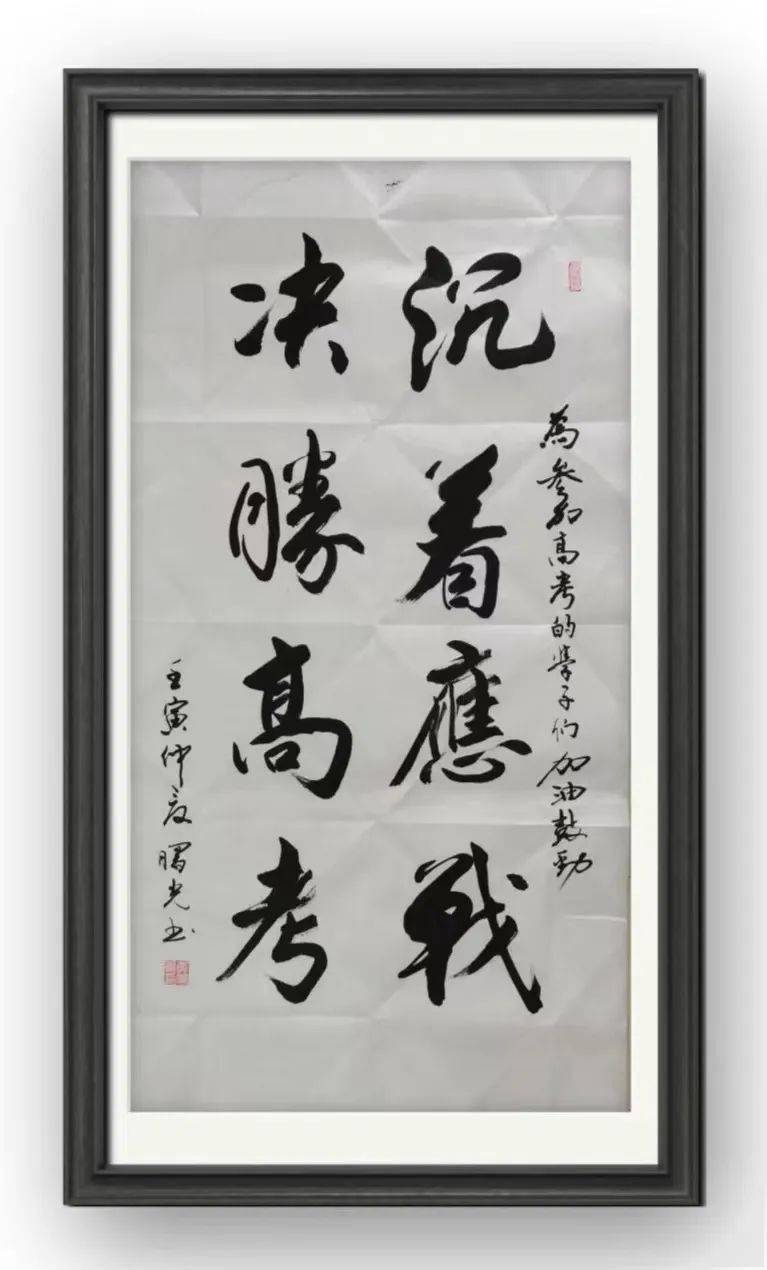 為參加高考的學子们加油鼓勁
沉着應戰
决勝高考
壬寅仲夏曙光书